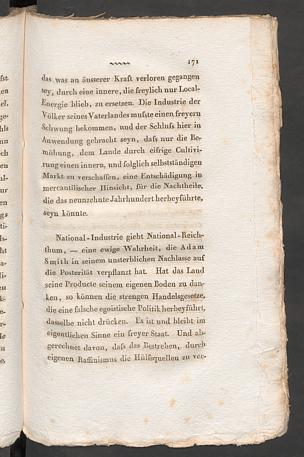 171
das was an äusserer Kraft verloren gegangen
sey, durch eine innere, die freylich nur Local-
Energie blieb, zu ersetzen. Die Industrie der
Völker seines Vaterlandes mußte einen freyern
Schwung bekommen, und der Schluß hier in
Anwendung gebracht seyn, daß nur die Be-
mühung, dem Lande durch eifrige Cultivi-
rung einen innern, und folglich selbstständigen
Markt zu verschaffen, eine Entschädigung in
mercantilischer Hinsicht, für die Nachtheile,
die das neunzehnte Jahrhundert herbeyführte,
seyn könnte.
National-Industrie giebt National-Reich-
thum, — eine ewige Wahrheit, die Adam
Smith in seinem unsterblichen Nachlasse auf
die Posterität verpflanzt hat. Hat das Land
seine Producte seinem eigenen Boden zu dan-
ken, so können die strengen Handelsgesetze,
die eine falsche egoistische Politik herbeyführt,
dasselbe nicht drücken. Es ist und bleibt im
eigentlichen Sinne ein freyer Staat. Und ab-
gerechnet davon, daß das Bestreben, durch
eigenen Raffinismus die Hülfsquellen zu ver-